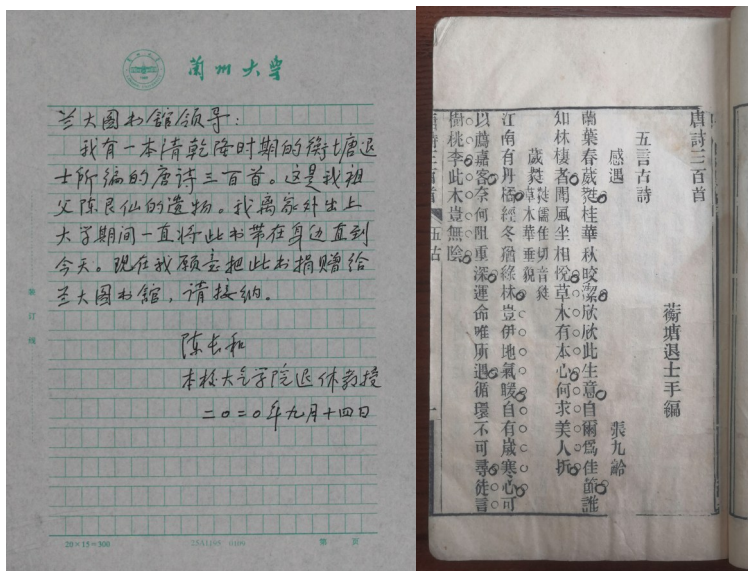 蘭州大學
兰大图书館领导:
我有一本清乾隆时期的衡塘退
士所编的唐诗三百首。这是我祖
父陈良仙的遗物。我离家外出上
大学期间一直将此书带在身边直到
今天。现在我愿意把此书捐赠给
兰大图书館,请接纳。
陈长和
本校大气学院退休教授
二〇二〇年九月十四日
装订线
20×15=300
第 页
唐詩三百首
蘅塘退士手編
五言古詩
感遇 張九齡
蘭葉春葳蕤桂華秋皎潔欣欣此生意自爾爲佳節誰
知林棲者聞風坐相悅草木有本心何求美人折
葳蕤 草木華垂貌
江南有丹橘經冬猶綠林豈伊地氣暖自有歲寒心可
以薦嘉客奈何阻重深運命唯所遇循環不可尋徒言
樹桃李此木豈無陰
唐詩三百首 五古